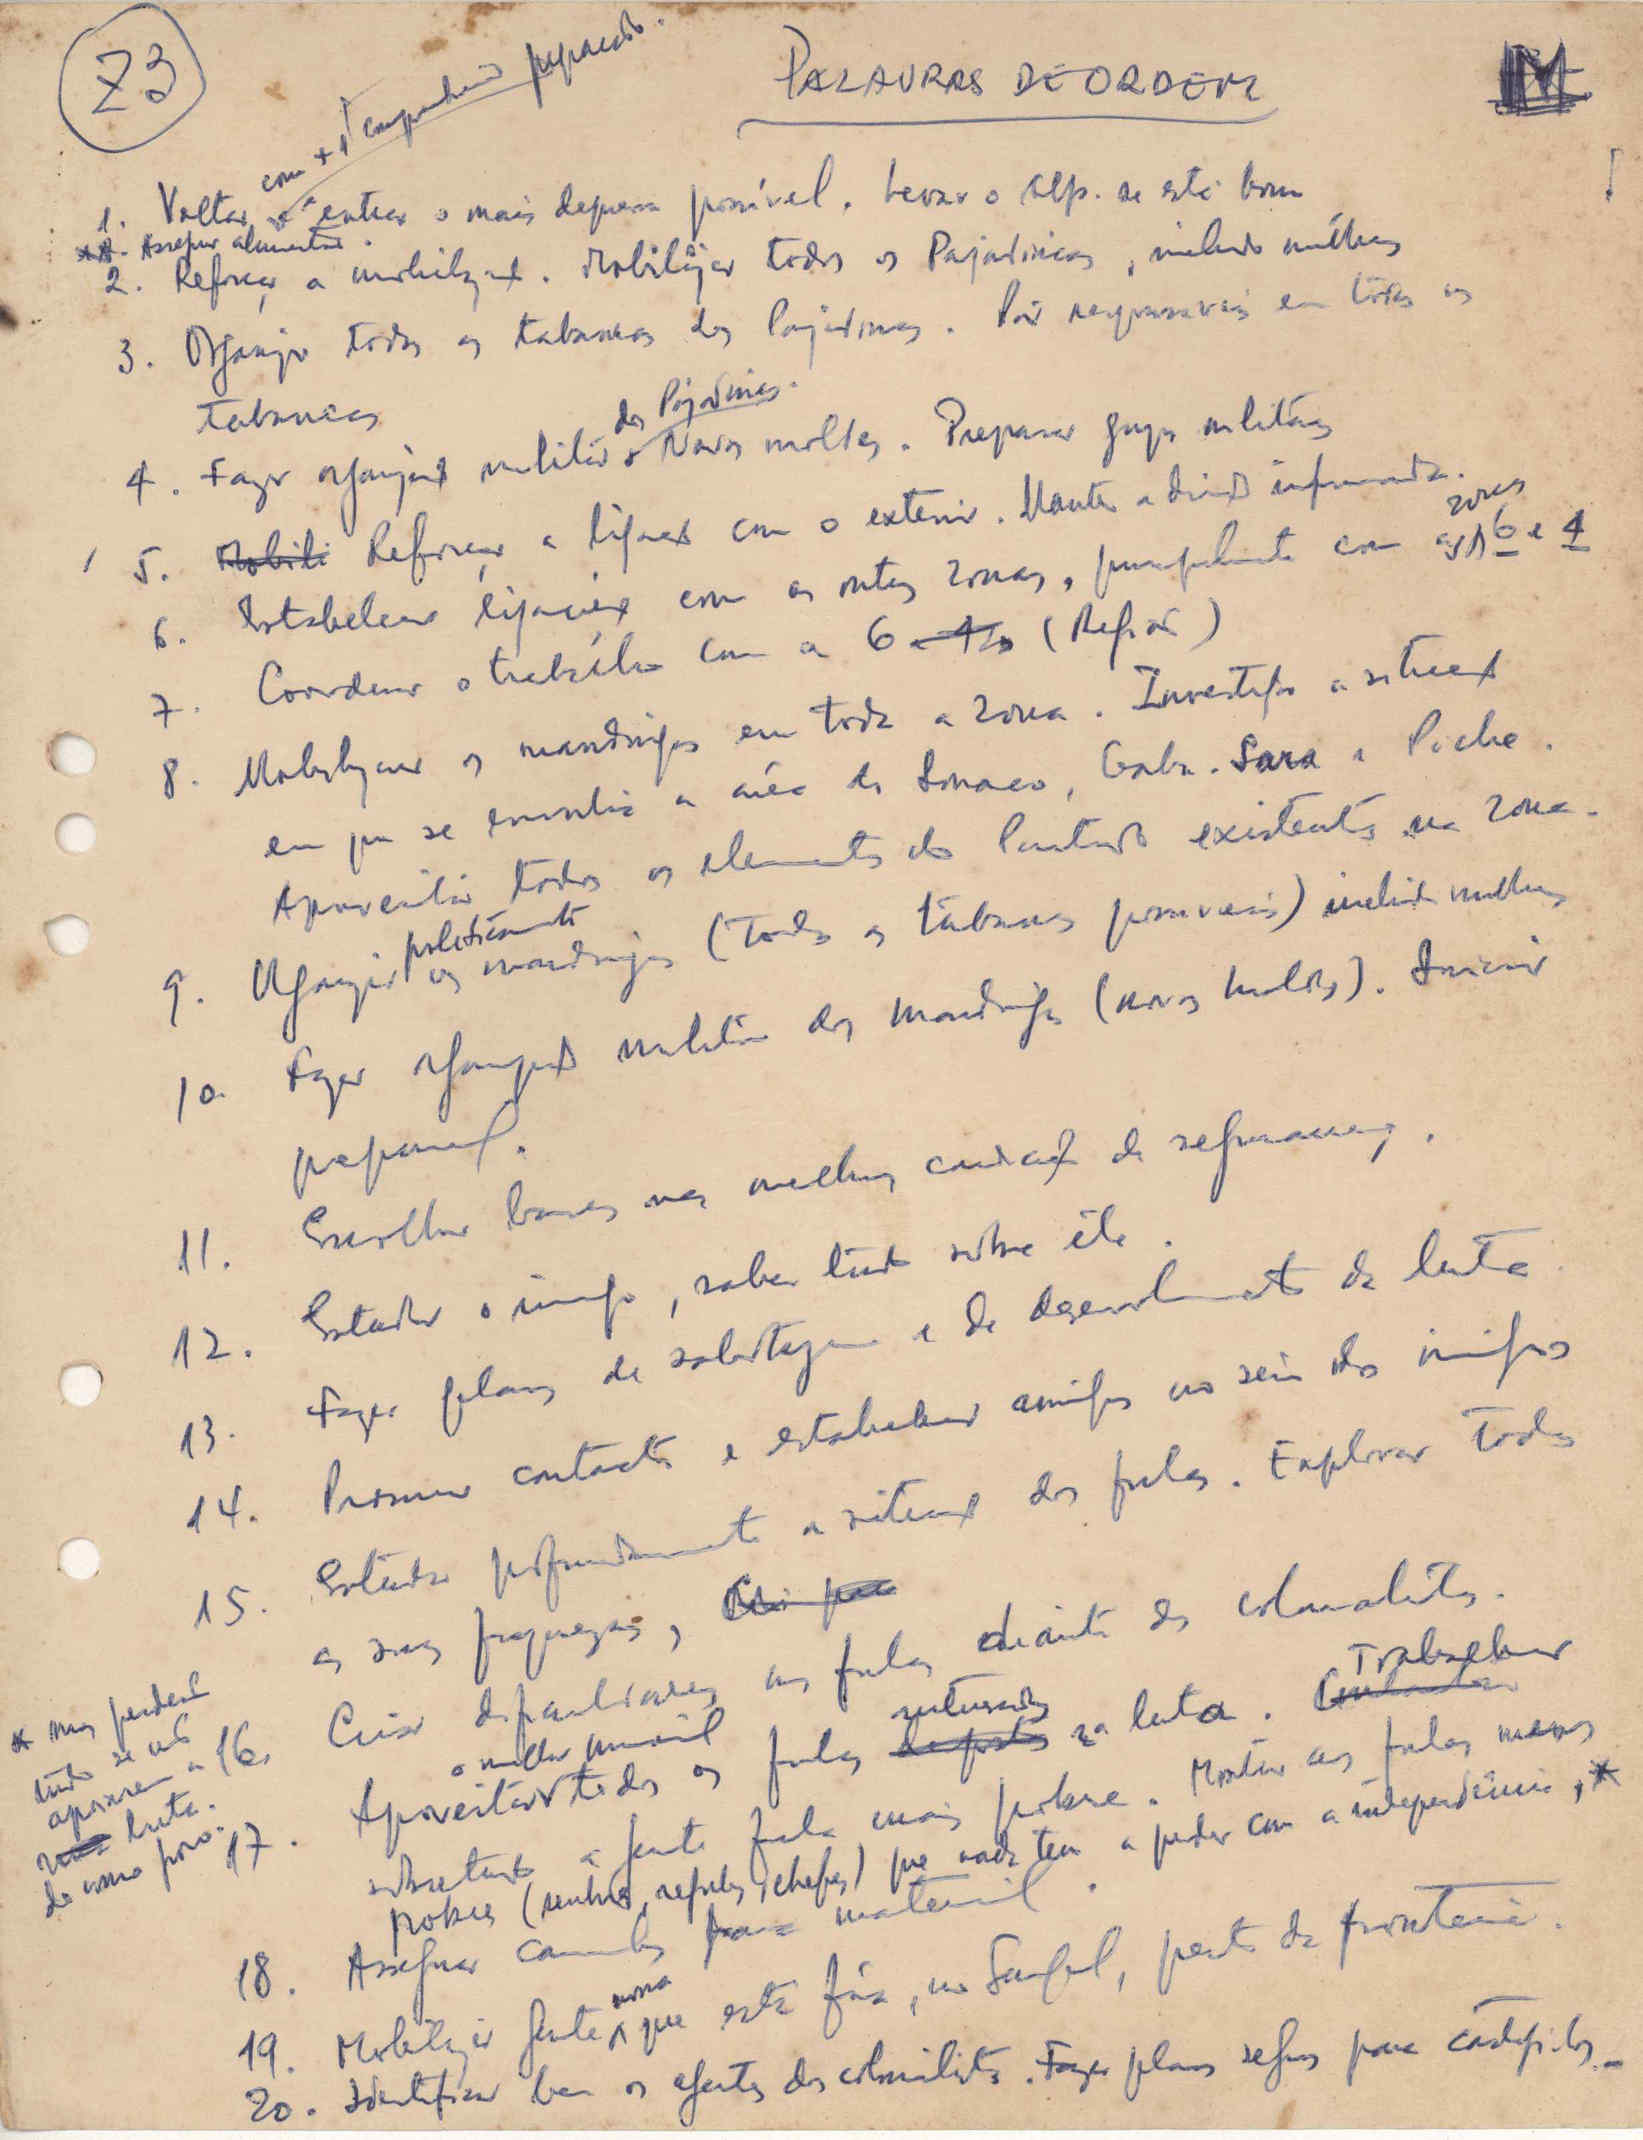 Z3
PALAVRAS DE ORDEM
com + 1 companheiro preparado.
1. Voltar a entrar o mais depressa possível. Levar o se está bom
*A. Assegurar alimentos.
2. Reforçar a mobilização. Mobilizar todos os Pajadincas, incluindo mulheres
3. Organizar todas as tabancas dos Pajadincas. Pôr responsáveis em todas as
tabancas
dos Pajadincas.
4. Fazer organização militar Novos moldes. Preparar grupos militares
5. Mobili Reforçar a ligação com o exterior. Manter a direcção informada.
zonas
6. Estabelecer ligações com as outras zonas, principalmente com as 6 e 4
7. Coordenar o trabalho com a 6 (Refai)
8. Mobilizar os mandingas em toda a zona. Investigar a situação
em que se encontra a área de Sonaco, Gabu-Sara e Piche.
Aproveitar todos os elementos do Partido existentes na zona.
politicamente
9. Organizar os mandingas (Todas as tabancas possíveis) incluindo mulheres
10. Fazer organização militar dos mandingas (novos moldes). Iniciar
preparação.
11. Escolher bases nas melhores condições de segurança.
12. Estudar o inimigo, saber tudo sobre êle.
13. Fazer planos de sabotagem e de desenvolvimento da luta
14. Procurar contactos e estabelecer amigos no seio dos inimigos
15. Estudar profundamente a situação dos fulas. Explorar todas
as suas fraquezas,
16. Criar dificuldades aos fulas diante dos colonialistas.
o melhor possível
interessados
Trabalhar
17. Aproveitar todos os fulas na luta.
sobretudo a gente fula mais pobre. Mostrar aos fulas menos
pobres (senhores, régulos, chefes) que nada tem a perder com a independência, *
* mas perderão
tudo se não
apoiarem a
luta
do nosso povo.
18. Assegurar caminhos para material.
nova
19. Mobilizar gente que está fóra, no Senegal, perto da fronteira.
20. Identificar bem os agentes dos colonialistas. Fazer planos seguros para castigá-los.